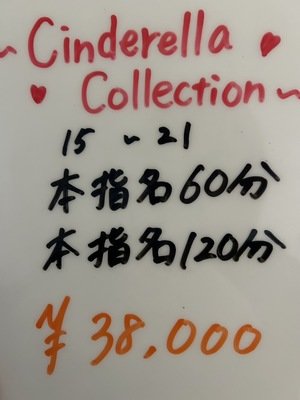 ~ Cinderella
Collection ~
15 ~ 21
本指名60分
本指名120分
¥38,000